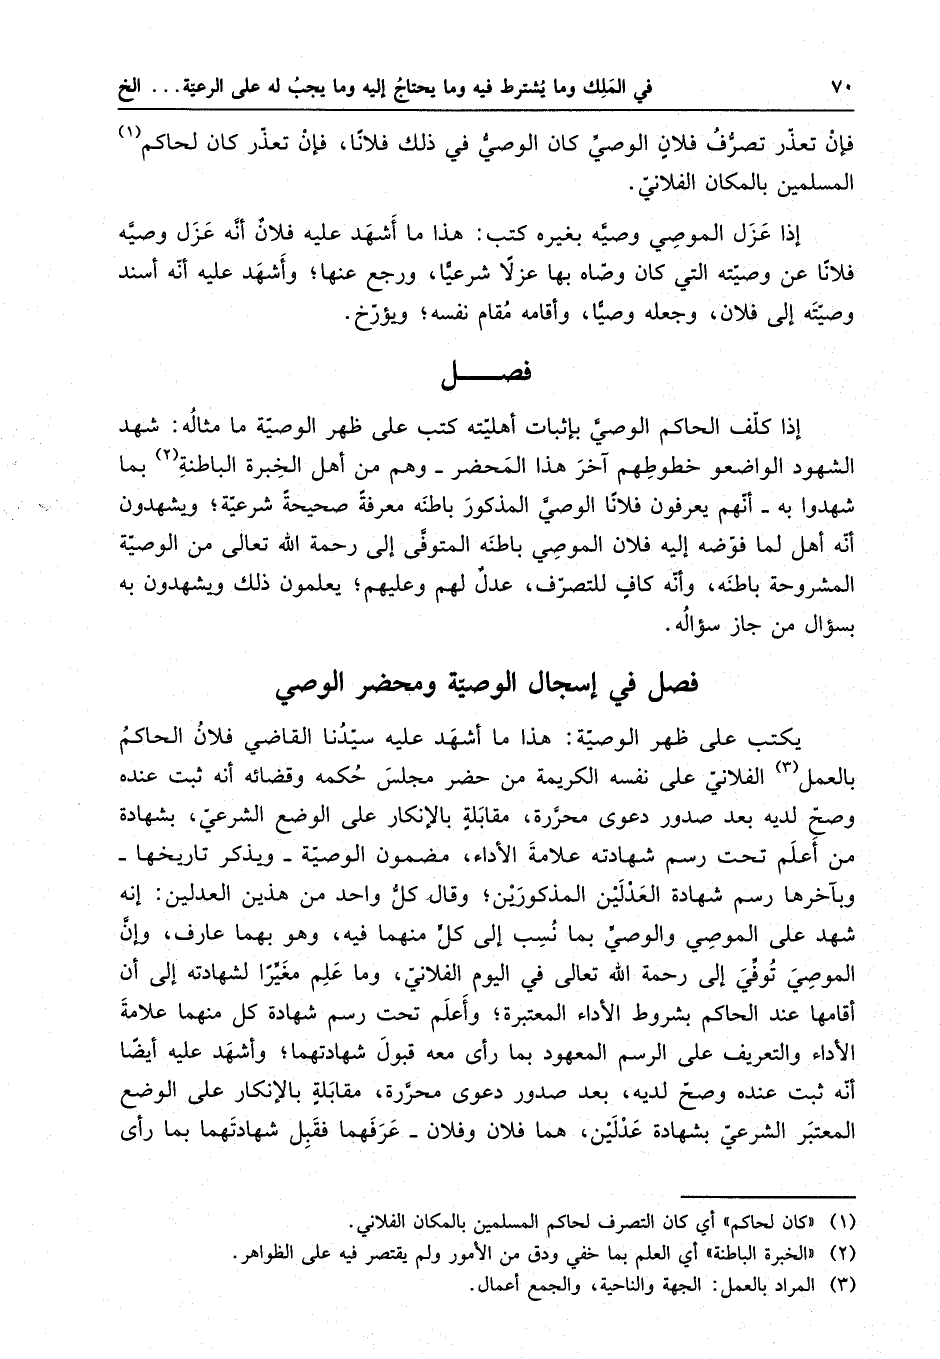 ٧٠ في المَلِك وما يُشترط فيه وما يحتاجُ إليه وما يجبُ له على الرعيّة... الخ
فإنْ تعذّر تصرُّفُ فلانٍ الوصيِّ كان الوصيُّ في ذلك فلانًا، فإنْ تعذّر كان لحاكم(١)
المسلمين بالمكان الفلانيّ.
إذا عَزَل الموصِي وصيَّه بغيره كتب: هذا ما أَشهَد عليه فلانٌ أنَّه عَزَل وصيَّه
فلانًا عن وصيّته التي كان وصّاه بها عزلًا شرعيًّا، ورجع عنها؛ وأَشهَد عليه أنّه أسند
وصيّتَه إلى فلان، وجعله وصيًّا، وأقامه مُقام نفسه؛ ويؤرّخ.
فصـــــل
إذا كلّف الحاكم الوصيَّ بإثبات أهليّته كتب على ظهر الوصيّة ما مثالُه: شهد
الشهود الواضعو خطوطِهم آخرَ هذا المَحضر ـ وهم من أهل الخِبرة الباطنةِ(٢) بما
شهدوا به ـ أنّهم يعرفون فلانًا الوصيَّ المذكورَ باطنَه معرفةً صحيحةً شرعيّة؛ ويشهدون
أنّه أهل لما فوّضه إليه فلان الموصِي باطنَه المتوفَّى إلى رحمة الله تعالى من الوصيّة
المشروحة باطنَه، وأنّه كافٍ للتصرّف، عدلٌ لهم وعليهم؛ يعلمون ذلك ويشهدون به
بسؤال من جاز سؤالُه.
فصل في إسجال الوصيّة ومحضر الوصي
يكتب على ظهر الوصيّة: هذا ما أشهَد عليه سيّدُنا القاضي فلانُ الحاكمُ
بالعمل(٣) الفلانيّ على نفسه الكريمة من حضر مجلسَ حُكمه وقضائه أنه ثبت عنده
وصحّ لديه بعد صدور دعوى محرَّرة، مقابَلةٍ بالإنكار على الوضع الشرعيّ، بشهادة
من أَعلَم تحت رسم شهادته علامةَ الأداء، مضمون الوصيّة ـ ويذكر تاريخها ـ
وبآخرها رسم شهادة العَدْلَيْن المذكورَيْن؛ وقال كلُّ واحد من هذين العدلين: إنه
شهد على الموصِي والوصيِّ بما نُسِب إلى كلٍّ منهما فيه، وهو بهما عارف، وإنَّ
الموصِيَ تُوفِّيَ إلى رحمة الله تعالى في اليوم الفلانيّ، وما عَلِم مغَيِّرًا لشهادته إلى أن
أقامها عند الحاكم بشروط الأداء المعتبرة؛ وأَعلَم تحت رسم شهادة كل منهما علامةَ
الأداء والتعريف على الرسم المعهود بما رأى معه قبولَ شهادتهما؛ وأشهَد عليه أيضًا
أنّه ثبت عنده وصحّ لديه، بعد صدور دعوى محرَّرة، مقابَلةٍ بالإنكار على الوضع
المعتبَر الشرعيّ بشهادة عَدْلَيْن، هما فلان وفلان ـ عَرَفَهما فقَبِل شهادتَهما بما رأى
(١) «كان لحاكم» أي كان التصرف لحاكم المسلمين بالمكان الفلاني.
(٢) «الخبرة الباطنة» أي العلم بما خفي ودق من الأمور ولم يقتصر فيه على الظواهر.
(٣) المراد بالعمل: الجهة والناحية، والجمع أعمال.